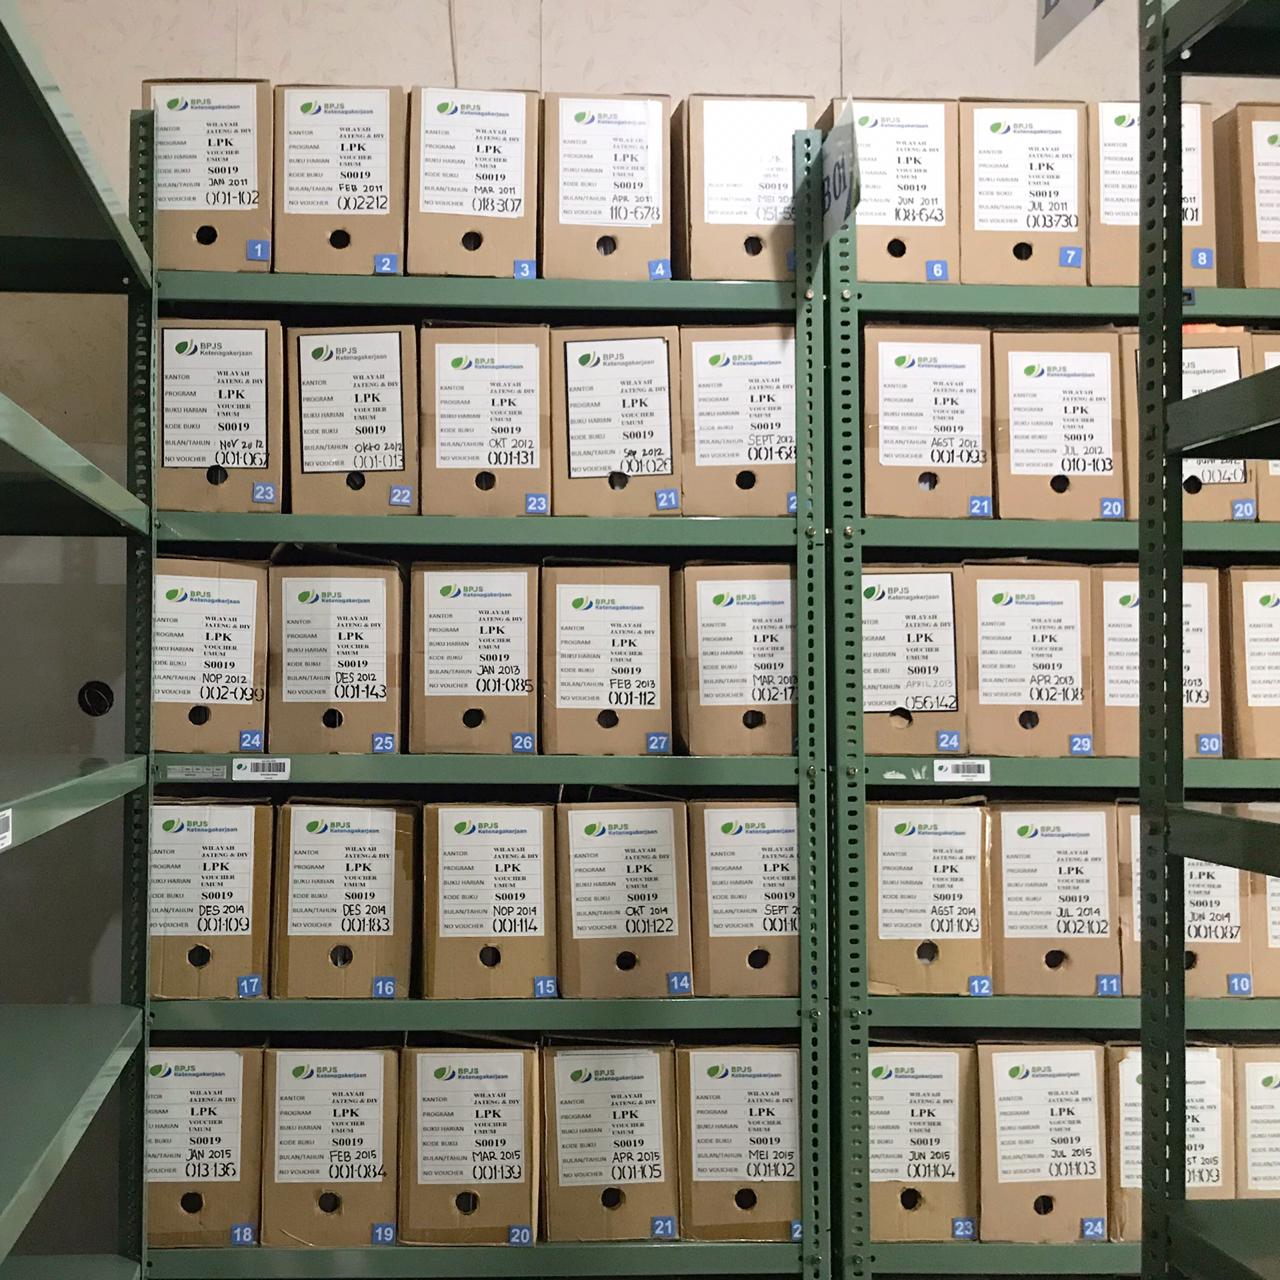 BPJS
Ketenagakerjaan
KANTOR WILAYAH JATENG & DIY
PROGRAM LPK
BUKU HARIAN VOUCHER UMUM
KODE BUKU S0019
BULAN/TAHUN JAN 2011
NO VOUCHER 001-102
1
BPJS
Ketenagakerjaan
KANTOR WILAYAH JATENG & DIY
PROGRAM LPK
BUKU HARIAN VOUCHER UMUM
KODE BUKU S0019
BULAN/TAHUN FEB 2011
NO VOUCHER 002-212
2
BPJS
Ketenagakerjaan
KANTOR WILAYAH JATENG & DIY
PROGRAM LPK
BUKU HARIAN VOUCHER UMUM
KODE BUKU S0019
BULAN/TAHUN MAR 2011
NO VOUCHER 018-307
3
BPJS
Ketenagakerjaan
KANTOR
PROGRAM LPK
BUKU HARIAN VOUCHER UMUM
KODE BUKU S0019
BULAN/TAHUN APR 2011
NO VOUCHER 110-678
4
S0019
BPJS
Ketenagakerjaan
WILAYAH JATENG & DIY
LPK
VOUCHER UMUM
S0019
JUN 2011
108-643
6
B 01
BPJS
Ketenagakerjaan
KANTOR WILAYAH JATENG & DIY
PROGRAM LPK
BUKU HARIAN VOUCHER UMUM
KODE BUKU S0019
BULAN/TAHUN JUL 2011
NO VOUCHER 003-730
7
BPJS
8
BPJS
Ketenagakerjaan
KANTOR WILAYAH JATENG & DIY
PROGRAM LPK
BUKU HARIAN VOUCHER UMUM
KODE BUKU S0019
BULAN/TAHUN NOV 2012
NO VOUCHER 001-067
23
BPJS
Ketenagakerjaan
KANTOR WILAYAH JATENG & DIY
PROGRAM LPK
BUKU HARIAN VOUCHER UMUM
KODE BUKU S0019
BULAN/TAHUN OKTO 2012
NO VOUCHER 001-013
22
BPJS
Ketenagakerjaan
KANTOR WILAYAH JATENG & DIY
PROGRAM LPK
BUKU HARIAN VOUCHER UMUM
KODE BUKU S0019
BULAN/TAHUN OKT 2012
NO VOUCHER 001-131
23
BPJS
Ketenagakerjaan
KANTOR WILAYAH JATENG & DIY
PROGRAM LPK
BUKU HARIAN VOUCHER UMUM
KODE BUKU S0019
BULAN/TAHUN Sep 2012
NO VOUCHER 001-026
21
BPJS
Ketenagakerjaan
KANTOR WILAYAH JATENG & DIY
PROGRAM LPK
BUKU HARIAN VOUCHER UMUM
KODE BUKU S0019
BULAN/TAHUN SEPT 2012
NO VOUCHER 001-68
BPJS
Ketenagakerjaan
KANTOR WILAYAH JATENG & DIY
PROGRAM LPK
BUKU HARIAN VOUCHER UMUM
KODE BUKU S0019
BULAN/TAHUN AGST 2012
NO VOUCHER 001-093
21
BPJS
Ketenagakerjaan
KANTOR WILAYAH JATENG & DIY
PROGRAM LPK
BUKU HARIAN VOUCHER UMUM
KODE BUKU S0019
BULAN/TAHUN JUL 2012
NO VOUCHER 010-103
20
20
BPJS
Ketenagakerjaan
WILAYAH JATENG & DIY
LPK
VOUCHER UMUM
KODE BUKU S0019
NOP 2012
NO VOUCHER 002-099
24
BPJS
Ketenagakerjaan
KANTOR WILAYAH JATENG & DIY
PROGRAM LPK
BUKU HARIAN VOUCHER UMUM
KODE BUKU S0019
BULAN/TAHUN DES 2012
NO VOUCHER 001-143
25
BPJS
Ketenagakerjaan
KANTOR WILAYAH JATENG & DIY
PROGRAM LPK
BUKU HARIAN VOUCHER UMUM
KODE BUKU S0019
BULAN/TAHUN JAN 2013
NO VOUCHER 001-085
26
BPJS
Ketenagakerjaan
KANTOR WILAYAH JATENG & DIY
PROGRAM LPK
BUKU HARIAN VOUCHER UMUM
KODE BUKU S0019
BULAN/TAHUN FEB 2013
NO VOUCHER 001-112
27
BPJS
Ketenagakerjaan
KANTOR WILAYAH JATENG & DIY
PROGRAM LPK
BUKU HARIAN VOUCHER UMUM
KODE BUKU S0019
BULAN/TAHUN MAR 2013
NO VOUCHER 002-17
BPJS
Ketenagakerjaan
WILAYAH JATENG & DIY
LPK
VOUCHER UMUM
S0019
APRIL 2013
056-142
24
BPJS
Ketenagakerjaan
KANTOR WILAYAH JATENG & DIY
PROGRAM LPK
BUKU HARIAN VOUCHER UMUM
KODE BUKU S0019
BULAN/TAHUN APR 2013
NO VOUCHER 002-108
29
30
BPJS
Ketenagakerjaan
KANTOR WILAYAH JATENG & DIY
LPK
VOUCHER UMUM
KODE BUKU S0019
BULAN/TAHUN DES 2014
NO VOUCHER 001-109
17
BPJS
Ketenagakerjaan
KANTOR WILAYAH JATENG & DIY
PROGRAM LPK
BUKU HARIAN VOUCHER UMUM
KODE BUKU S0019
BULAN/TAHUN DES 2014
NO VOUCHER 001-183
16
BPJS
Ketenagakerjaan
KANTOR WILAYAH JATENG & DIY
PROGRAM LPK
BUKU HARIAN VOUCHER UMUM
KODE BUKU S0019
BULAN/TAHUN NOP 2014
NO VOUCHER 001-114
15
BPJS
Ketenagakerjaan
KANTOR WILAYAH JATENG & DIY
PROGRAM LPK
BUKU HARIAN VOUCHER UMUM
KODE BUKU S0019
BULAN/TAHUN OKT 2014
NO VOUCHER 001-122
14
BPJS
Ketenagakerjaan
KANTOR WILAYAH JATENG & DIY
PROGRAM LPK
BUKU HARIAN VOUCHER UMUM
KODE BUKU S0019
BULAN/TAHUN SEPT
NO VOUCHER
BPJS
Ketenagakerjaan
KANTOR WILAYAH JATENG & DIY
PROGRAM LPK
BUKU HARIAN VOUCHER UMUM
KODE BUKU S0019
BULAN/TAHUN AGST 2014
NO VOUCHER 001-109
12
BPJS
Ketenagakerjaan
KANTOR WILAYAH JATENG & DIY
PROGRAM LPK
BUKU HARIAN VOUCHER UMUM
KODE BUKU S0019
BULAN/TAHUN JUL 2014
NO VOUCHER 002-102
11
WILAYAH JATENG & DIY
LPK
VOUCHER UMUM
S0019
JUN 2014
001-087
10
BPJS
Ketenagakerjaan
WILAYAH JATENG & DIY
PROGRAM LPK
BUKU HARIAN VOUCHER UMUM
KODE BUKU S0019
BULAN/TAHUN JAN 2015
NO VOUCHER 013-136
18
BPJS
Ketenagakerjaan
KANTOR WILAYAH JATENG & DIY
PROGRAM LPK
BUKU HARIAN VOUCHER UMUM
KODE BUKU S0019
BULAN/TAHUN FEB 2015
NO VOUCHER 001-084
19
BPJS
Ketenagakerjaan
KANTOR WILAYAH JATENG & DIY
PROGRAM LPK
BUKU HARIAN VOUCHER UMUM
KODE BUKU S0019
BULAN/TAHUN MAR 2015
NO VOUCHER 001-139
20
BPJS
Ketenagakerjaan
KANTOR WILAYAH JATENG & DIY
PROGRAM LPK
BUKU HARIAN VOUCHER UMUM
KODE BUKU S0019
BULAN/TAHUN APR 2015
NO VOUCHER 001-105
21
BPJS
Ketenagakerjaan
KANTOR WILAYAH JATENG & DIY
PROGRAM LPK
BUKU HARIAN VOUCHER UMUM
KODE BUKU S0019
BULAN/TAHUN MEI 2015
NO VOUCHER 001-102
BPJS
Ketenagakerjaan
WILAYAH JATENG & DIY
PROGRAM LPK
BUKU HARIAN VOUCHER UMUM
KODE BUKU S0019
BULAN/TAHUN JUN 2015
NO VOUCHER 001-104
23
BPJS
Ketenagakerjaan
KANTOR WILAYAH JATENG & DIY
PROGRAM LPK
BUKU HARIAN VOUCHER UMUM
KODE BUKU S0019
BULAN/TAHUN JUL 2015
NO VOUCHER 001-103
24